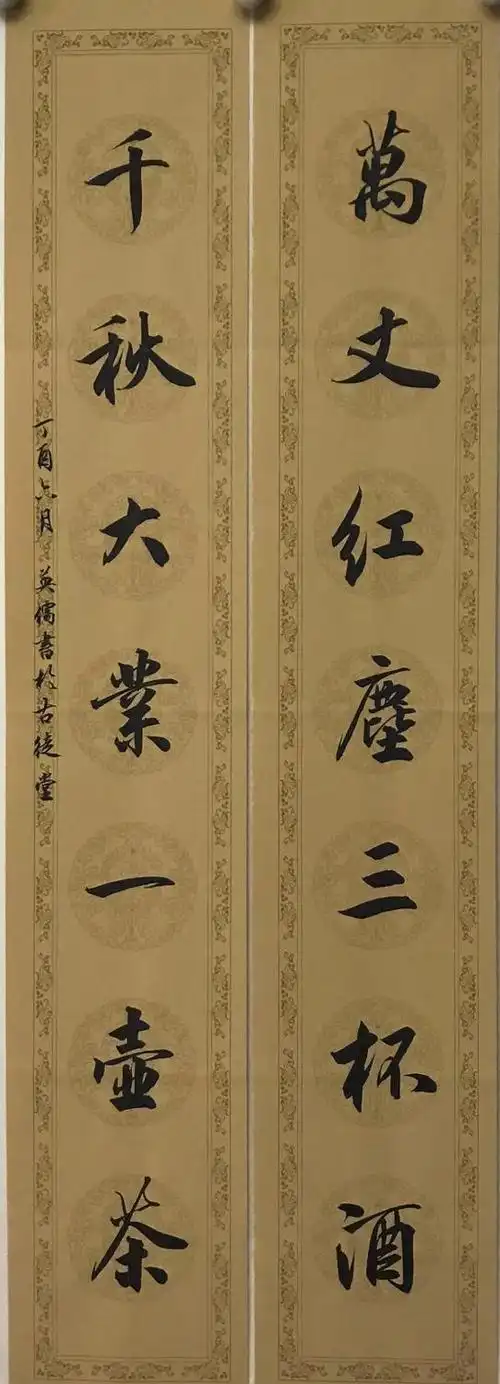 萬丈红塵三杯酒
千秋大業一壺茶
丁酉六月 英儒書於古徒堂